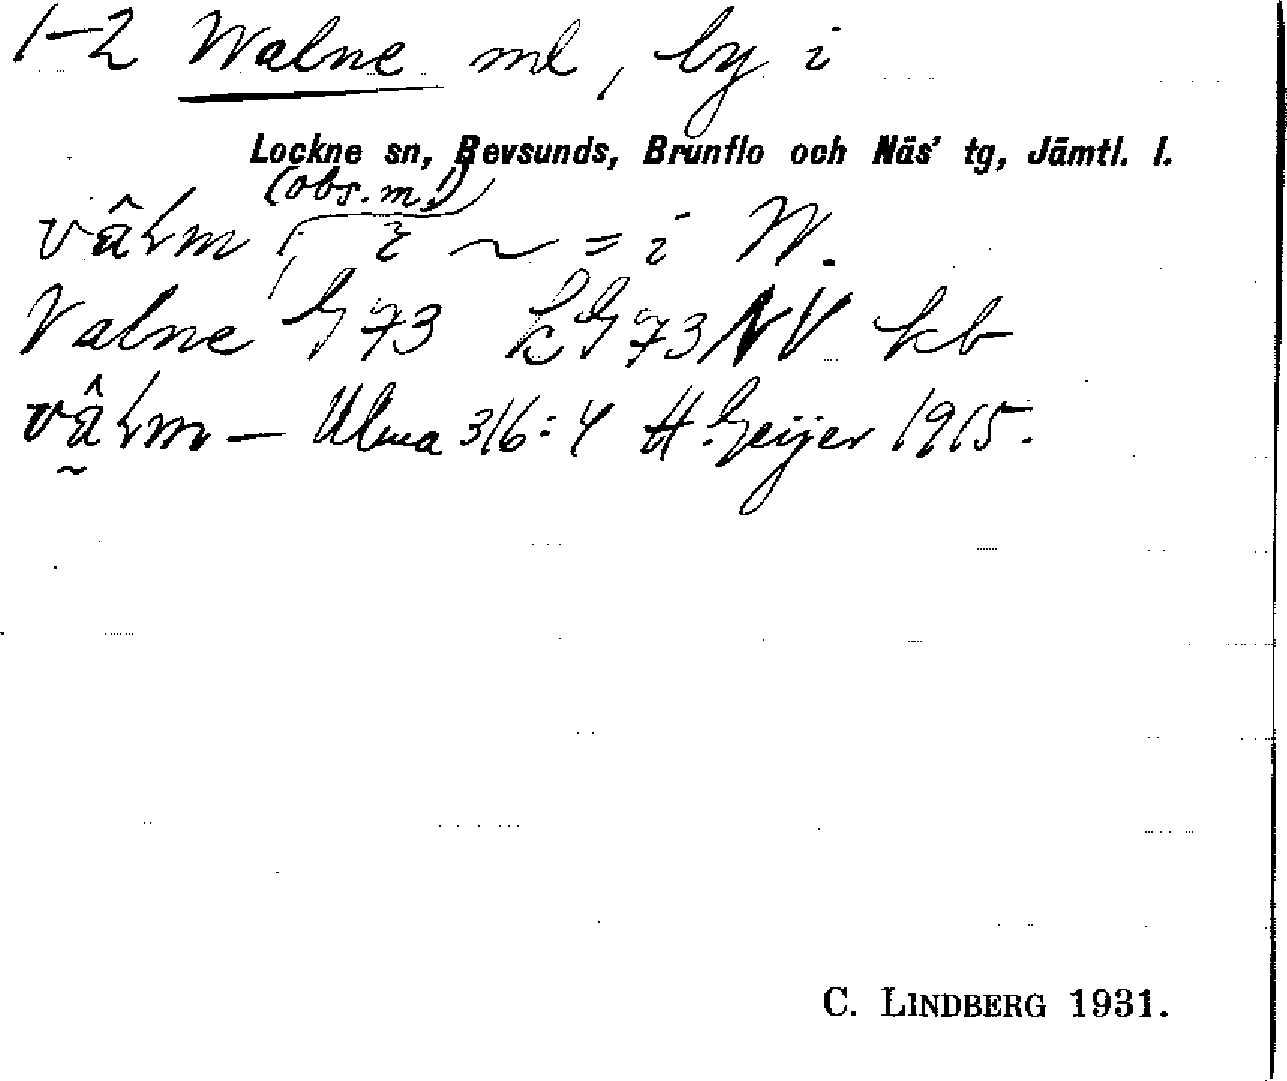 1-2 Walne ml, by i
Lockne sn, Revsunds, Brunflo och Näs' tg, Jämtl. l.
(obs. m!)
i ~ = i W.
Valne G 73 kG 73 NV kb
— Ulma 316:4 H. Geijer 1915.
C. LINDBERG 1931.